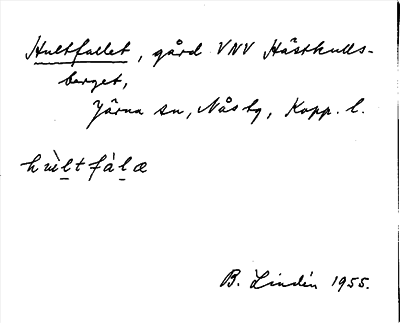 Hultfallet, gård VNV Hästkulls-
berget,
Järna sn, Nås tg, Kopp. l.
hùltfàlæ
B. Lindén 1955.